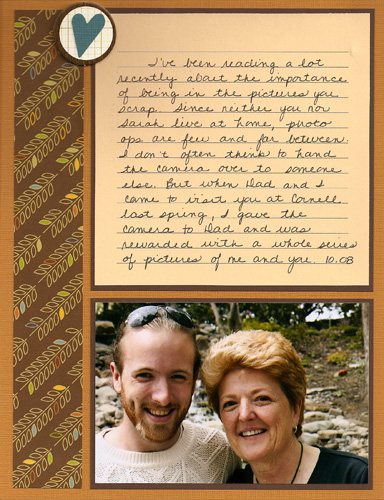 I've been reading a lot
recently about the importance
of being in the pictures you
scrap. Since neither you nor
Sarah live at home, photo
ops are few and far between.
I don't often think to hand
the camera over to someone
else. But when Dad and I
came to visit you at Cornell
last spring, I gave the
camera to Dad and was
rewarded with a whole series
of pictures of me and you. 10.08